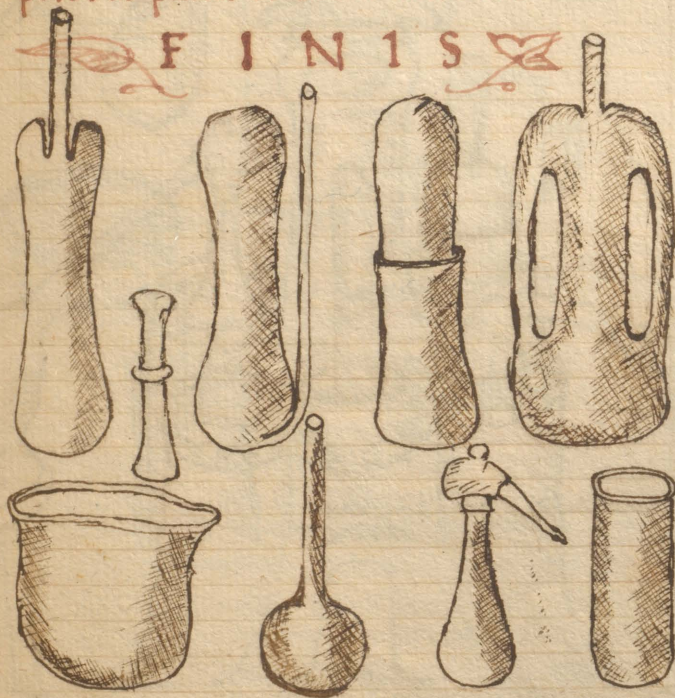 F I N I S